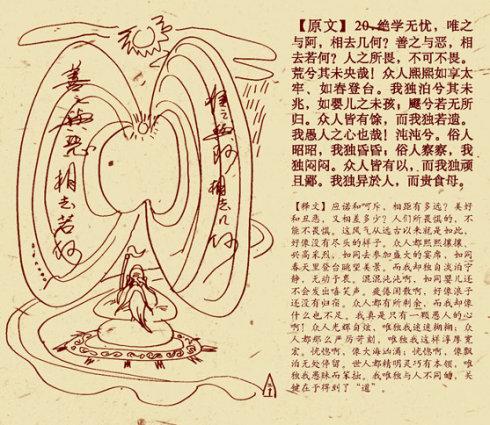 善之与恶相去若何
唯之与阿相去几何
【原文】20、绝学无忧，唯之
与阿，相去几何？善之与恶，相
去若何？人之所畏，不可不畏。
荒兮其未央哉！众人熙熙如享太
牢、如春登台。我独泊兮其未
兆，如婴儿之未孩；飂兮若无所
归。众人皆有馀，而我独若遗。
我愚人之心也哉！沌沌兮。俗人
昭昭，我独昏昏；俗人察察，我
独闷闷。众人皆有以，而我独顽
且鄙。我独异於人，而贵食母。
【释文】应诺和呵斥，相距有多远？美好
和丑恶，又相差多少？人们所畏惧的，不
能不畏惧。这风气从远古以来就是如此，
好像没有尽头的样子。众人都熙熙攘攘、
兴高采烈，如同去参加盛大的宴席，如同
春天里登台眺望美景。而我却独自淡泊宁
静，无动于衷。混混沌沌啊，如同婴儿还
不会发出嘻笑声。疲倦闲散啊，好像浪子
还没有归宿。众人都有所剩余，而我却像
什么也不足。我真是只有一颗愚人的心
啊！众人光辉自炫，唯独我迷迷糊糊；众
人都那么严厉苛刻，唯独我这样淳厚宽
宏。恍惚啊，像大海汹涌；恍惚啊，像飘
泊无处停留。世人都精明灵巧有本领，唯
独我愚昧而笨拙。我唯独与人不同的，关
键在于得到了“道”。